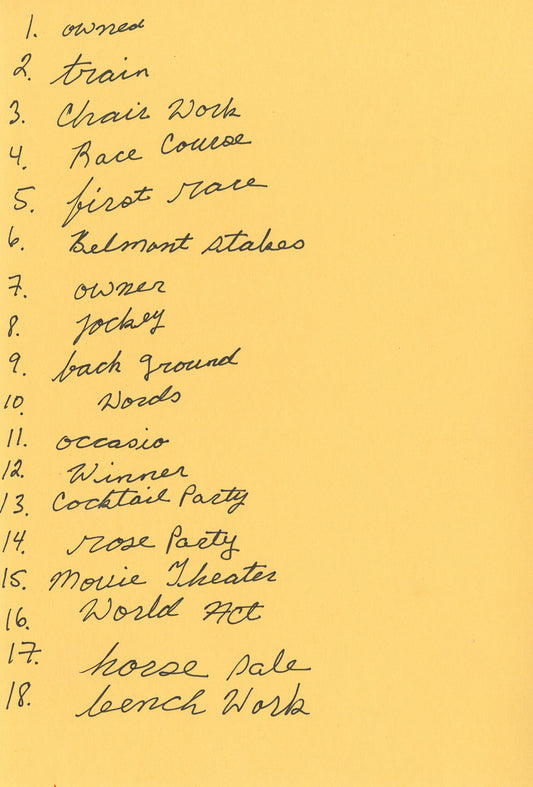 1. owned
2. train
3. Chair Work
4. Race Course
5. first race
6. Belmont stakes
7. owner
8. Jockey
9. back ground
10. Words
11. occasio
12. Winner
13. Cocktail Party
14. rose Party
15. Movie Theater
16. World Act
17. horse sale
18. bench Work